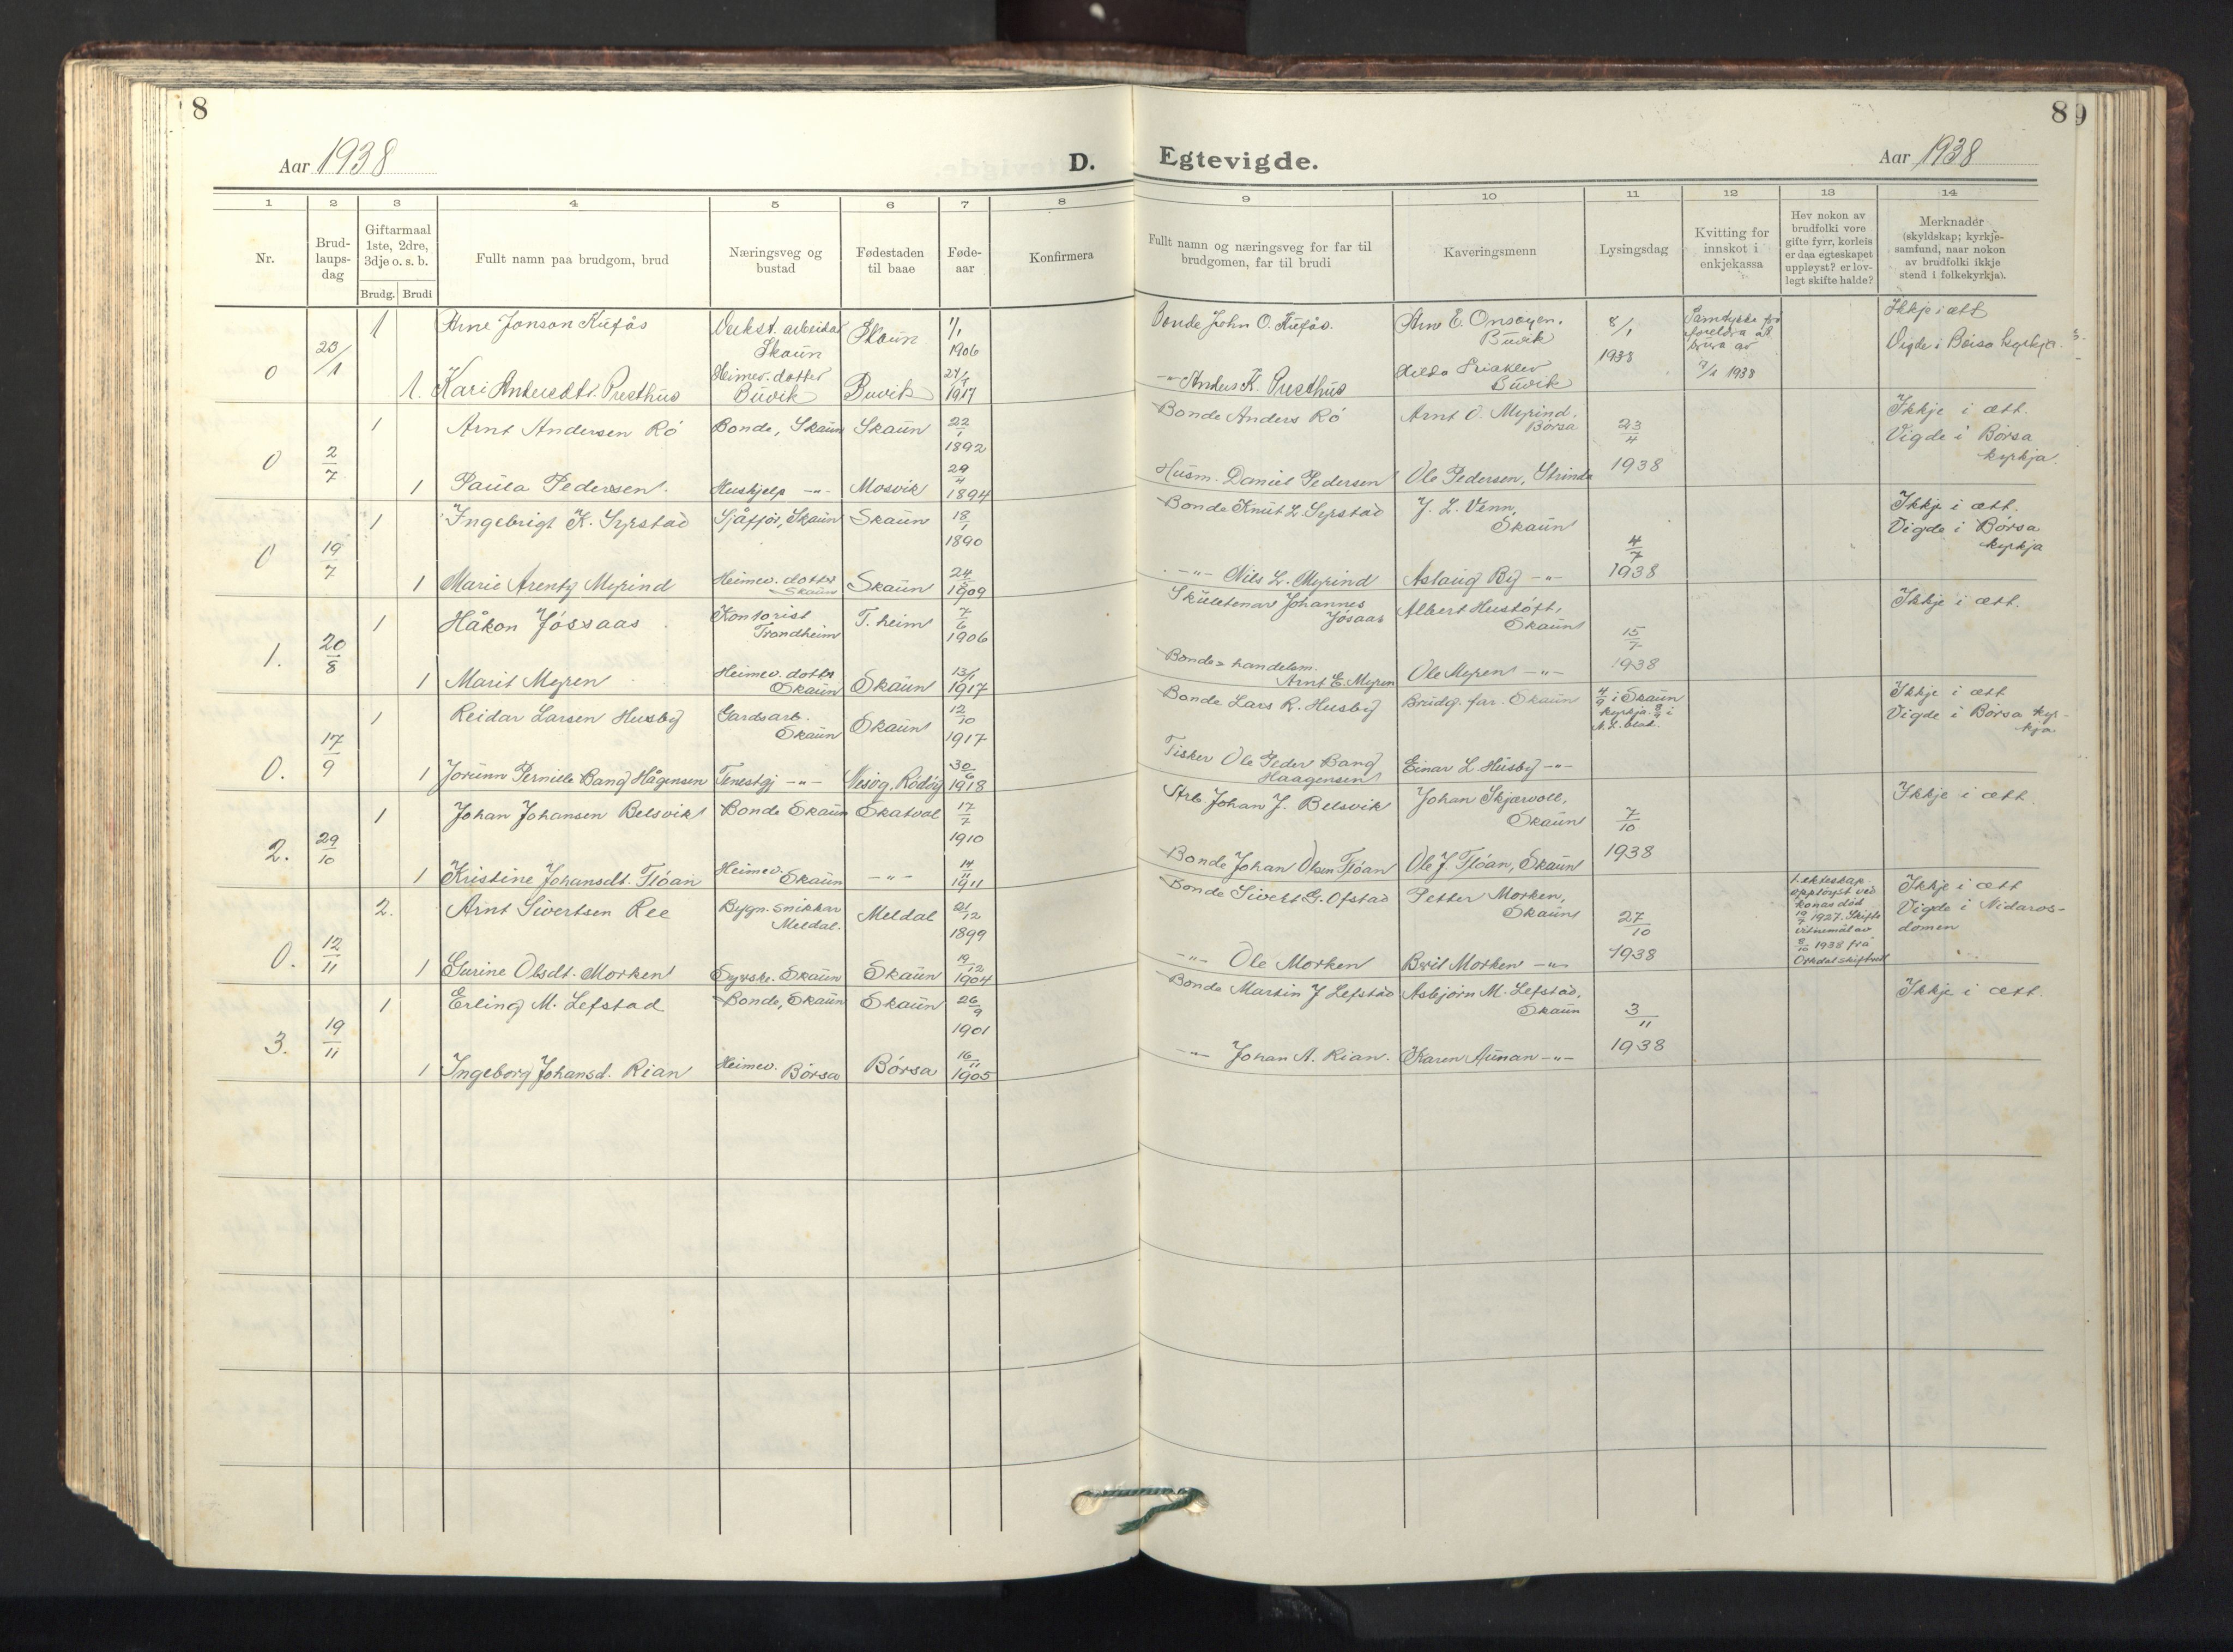 8
89
Aar 1938
D.
Egtevigde.
Aar 1938
1 2 3 4 5 6 7 8 9 10 11 12 13 14
Nr.
Brud-
laups-
dag
Giftarmaal
1ste, 2dre,
3dje o. s. b.
Brudg. Brudi
Fullt namn paa brudgom, brud
Næringsveg og
bustad
Fødestaden
til baae
Føde-
aar
Konfirmera
Fullt namn og næringsveg for far til
brudgomen, far til brudi
Kaveringsmenn
Lysingsdag
Kvitting for
innskot i
enkjekassa
Hev nokon av
brudfolki vore
gifte fyrr, korleis
er daa egteskapet
uppløyst? er lov-
legt skifte halde?
Merknader
(skyldskap; kyrkje-
samfund, naar nokon
av brudfolki ikkje
stend i folkekyrkja).
0 23/1
1 Arne Jonson Rufås Verkst. arbeidar Skaun Skaun 1/1 1906 Bonde John O. Rufås. Arne E. Onsøyen. Buvik 8/1 1938
1. Kari Andersdt. Presthus Heimev. dotter Buvik Buvik 1917 -"- Anders K. Presthus Buvik
Ikkje i ætt
Vigde i Börsa kyrkja.
0 2/7
1 Arnt Andersen Rö Bonde, Skaun Skaun 22/1 1892 Bonde Anders Rö Arnt O. Myrind. Börsa 23/4 1938
1 Paula Pedersen. Huskjelp -"- Mosvik 29/4 1894 Husm. Daniel Pedersen Ole Pedersen, Strinda
Ikkje i ætt.
Vigde i Börsa
kyrkja.
0 19/7
1 Ingebrigt K. Syrstad Sjåfför, Skaun Skaun 18/1 1890 Bonde Knut L. Syrstad J. L. Venn, Skaun 4/7 1938
1 Marie Arentz Myrind Heimev. dotter Skaun Skaun 1909 -"- Nils L. Myrind Aslaug By -"-
Ikkje i ætt.
Vigde i Börsa
kyrkja
1. 20/8
1 Håkon Jössaas Kontorist Trondheim T. heim 7/6 1906 Skuletenar Johannes Jösaas Albert Hustöft, Skaun 15/7 1938
1 Marit Myren Heimev. dotter Skaun Skaun 13/1 1917 Bonde & handelsm. Arnt E. Myren Ole Myren -"-
Ikkje i ætt.
0. 17/9
1 Reidar Larsen Husby Gardsarb. Skaun Skaun 12/10 1917 Bonde Lars R. Husby Brudg. far. Skaun 4/9 i Skaun kyrkja. 8/9 i
1 Jorunn Pernille Bang Hågensen Tenestgj -"- Rödöy 30/6 1918 Fisker Ole Peder Bang Haagensen Einar L. Husby -"-
Ikkje i ætt
Vigde i Börsa kyr-
kja
2. 29/10
1 Johan Johansen Belsvik Bonde Skaun Skatval 17/7 1910 Arb Johan J. Belsvik Johan Skjærvoll, Skaun 7/10 1938
1 Kristine Johansdt. Flöan Heimev. Skaun -"- 14/11 1911 Bonde Johan Olsen Flöan Ole J. Flöan, Skaun
Ikkje i ætt.
0. 12/11
2. Arnt Sivertsen Ree Bygn. snikkar Meldal. Meldal 21/12 1899 Bonde Sivert G. Ofstad Petter Morken, Skaun 27/10 1938
1 Gurine Olsdt. Morken Syerske. Skaun Skaun 19/12 1904 -"- Ole Morken Berit Morken -"-
1. ekteskap
opplöyst ved
konas död
19/7 1927. Skifte
vitnemål av
8/10 1938 frå
Orkdal skifterett
Ikkje i ætt
Vigde i Nidaros-
domen
3. 19/11
1 Erling M. Lefstad Bonde, Skaun Skaun 26/9 1901 Bonde Martin J Lefstad Asbjörn M. Lefstad, Skaun 3/11 1938
1 Ingeborg Johansd. Rian Heimev. Börsa Börsa 16/11 1905 -"- Johan A. Rian. Karen Aunan -"-
Ikkje i ætt.